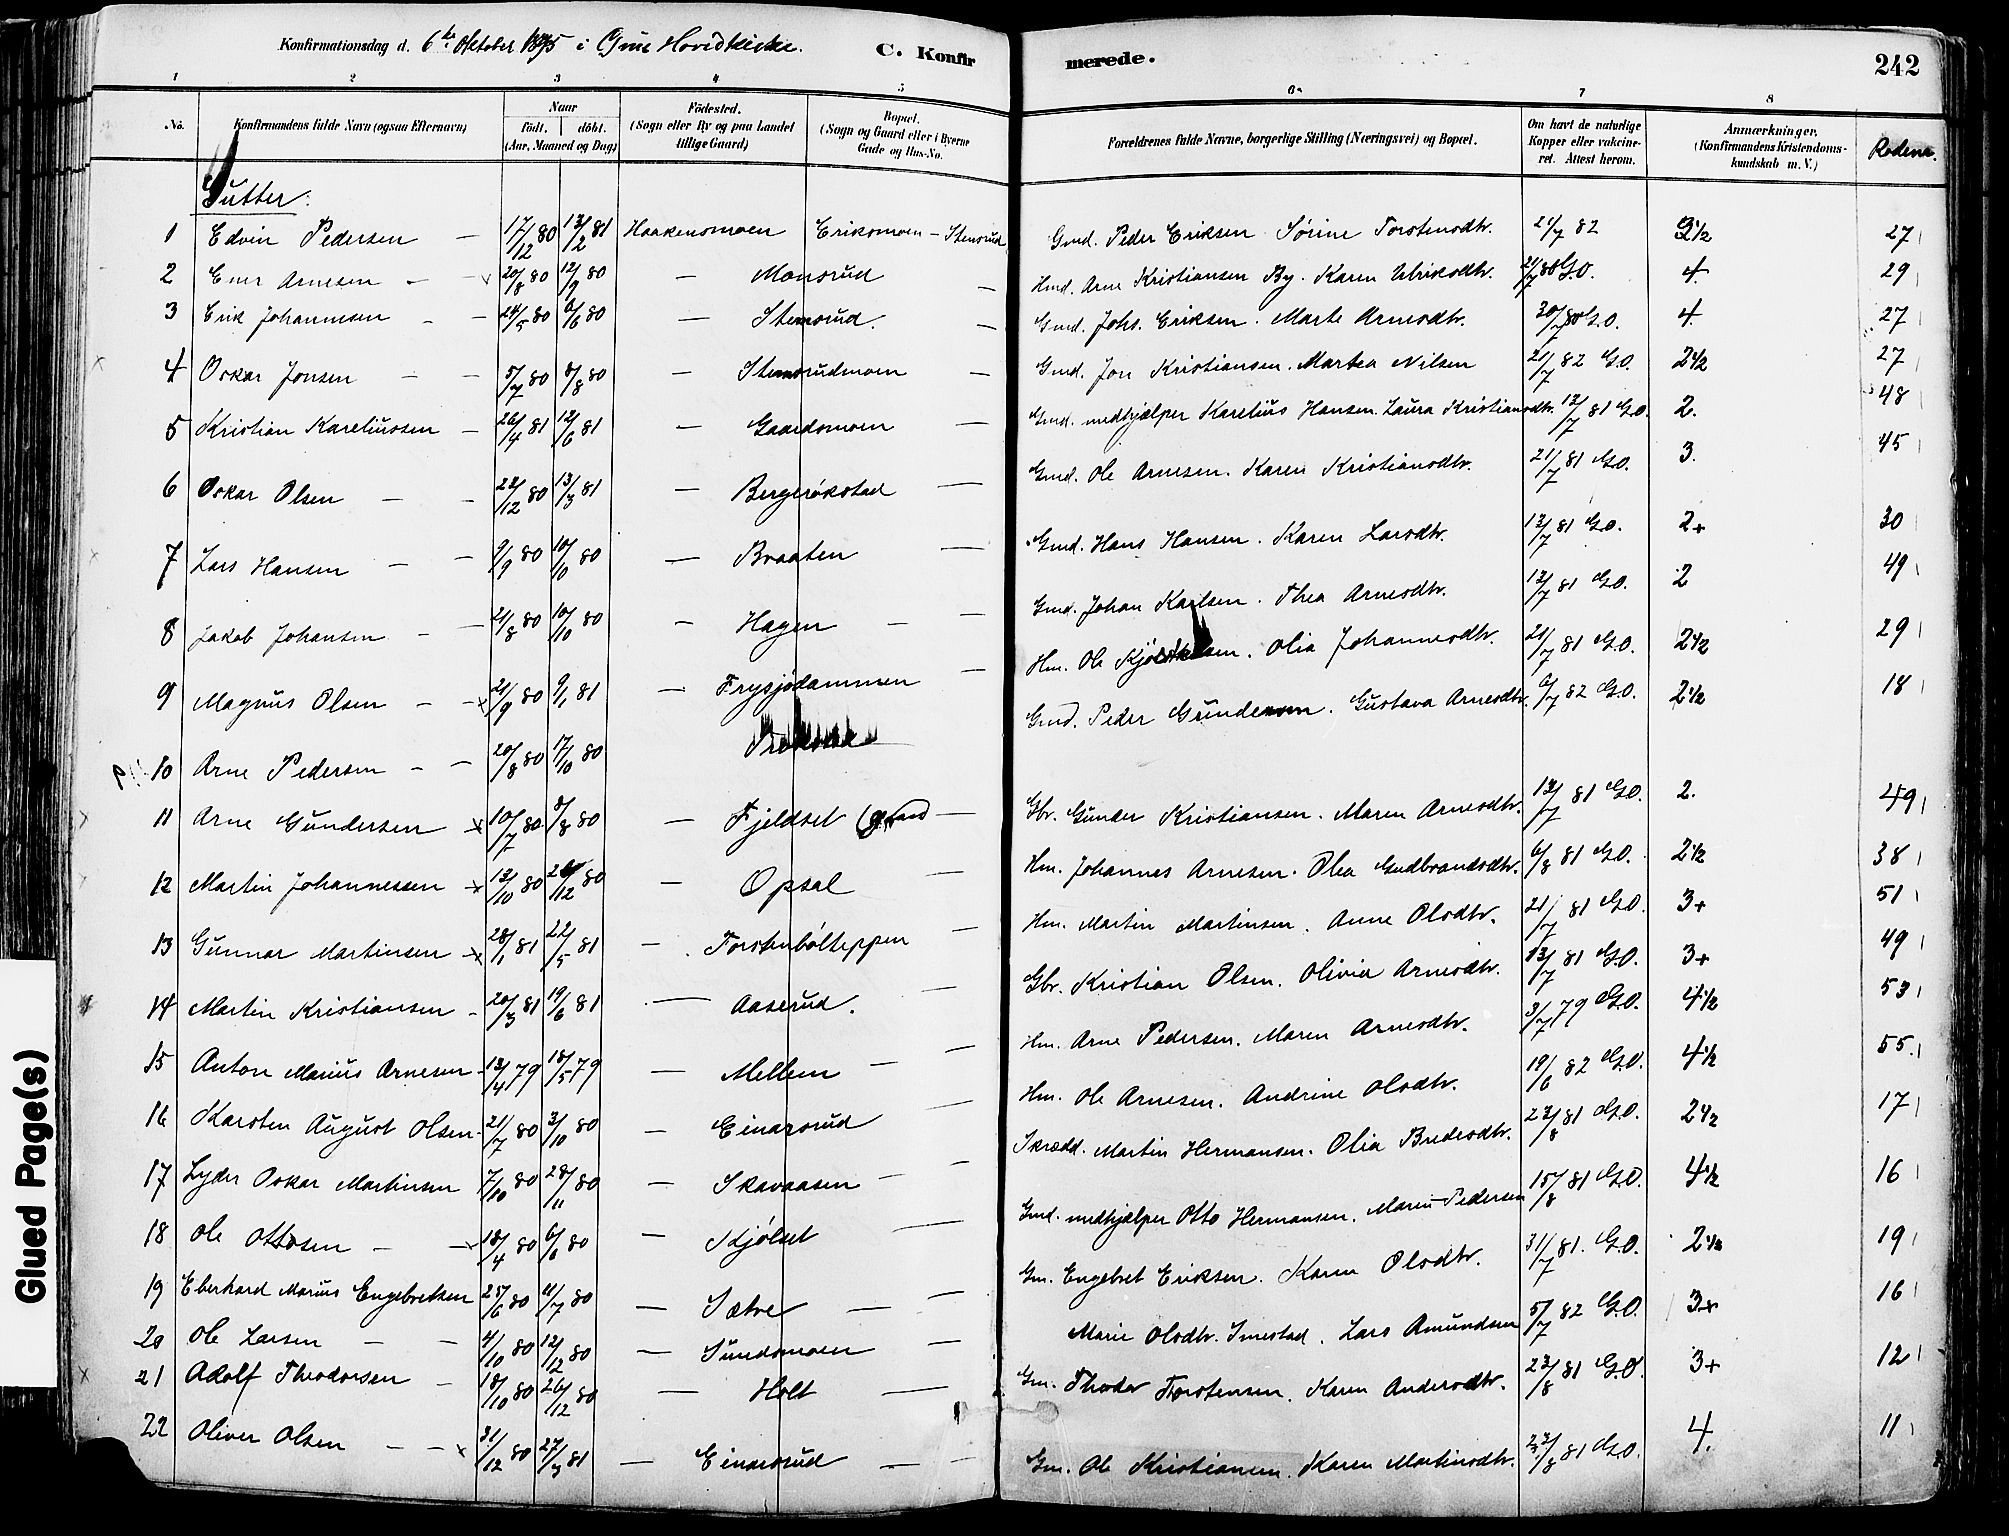 Konfirmationsdag d. 6te Oktober 1895 i Grue Hovedkirke. C. Konfirmerede. 242
1 2 3 4 5 6. 7 8
No. Konfirmandens fulde Navn (ogsaa Efternavn) Naar födt. döbt. (Aar, Maaned og Dag) Födested. (Sogn eller By og paa Landet tillige Gaard) Bopæl. (Sogn og Gaard eller i Byerne Gade og Hus-No. Forældrenes fulde Navne, borgerlige Stilling (Næringsvei) og Bopæl. Om havt de naturlige Kopper eller vakcineret. Attest herom. Anmærkninger. (Konfirmandens Kristendomskundskab m.V.) Rodenr.
Gutter:
1 Edvin Pedersen — 17/12 80 13/2 81 Haakensmoen Eriksmoen - Stensrud Gmd. Peder Eriksen Sörine Torstensdtr. 21/7 82 3 1/2 27
2 Arnesen - - 20/8 80 12/9 80 — Monsrud — Hmd. Arne Kristiansen By. Karen Ulriksdtr. 21/7 80 G.O. 4. 29
3 Erik Johannesen - - 24/5 80 6/6 80 — Stensrud. — Gmd. Johs. Eriksen. Marte Arnesdtr. 30/7 80 G.O. 4. 27
4 Oskar Jonsen — — 5/7 80 8/8 80 — Stensrudmoen — Gmd. Jon Kristiansen. Martea Nilsen 21/7 82 G.O. 2 1/2 27
5 Kristian Kareliussen — 26/4 81 12/6 81 — Gaardsmoen — Gmd. medhjælper Karelius Hansen. Laura Kristiansdtr. 12/7 81 G.O. 2. 48
6 Oskar Olsen — - 22/12 80 13/3 81 — Bergerökstad — Gmd. Ole Arnesen. Karen Kristiansdtr. 21/7 81 G.O. 3. 45
7 Lars Hansen — — 9/9 80 10/10 80 — Braaten — Gmd. Hans Hansen. Karen Larsdtr. 12/7 81 G.O. 2+ 30
8 Jakob Johansen - — 21/8 80 10/10 80 — Hagen — — Gmd. Johan Karlsen. Thea Arnesdtr. 12/7 81 G.O. 2 49
9 Magnus Olsen - -x 21/9 80 9/1 81 — Frysjödammen — Hm. Ole Olia Johannesdtr. 21/7 81 G.O. 2 1/2 29
10 Arne Pedersen - — 20/8 80 17/10 80 Gmd. Peder Gundersen. Gustava Arnesdtr. 6/7 82 G.O. 2 1/2 18
11 Arne Gundersen x 10/7 80 8/8 80 — Fjeldset — Gbr. Gunder Kristiansen. Maren Arnesdtr. 12/7 81 G.O. 2. 49
12 Martin Johannessen x 12/10 80 26/12 80 — Opsal — Hm. Johannes Arnesen. Olea Gudbrandsdtr. 6/8 81 G.O. 2 1/2 38
13 Gunnar Martinsen x 28/1 81 22/5 81 — Torstenbölteppen — Hm. Martin Martinsen. Anne Olsdtr. 21/7 81 G.O. 3+ 51
14 Martin Kristiansen - 20/3 81 19/6 81 — Aaserud. — Gbr. Kristian Olsen. Olivia Arnesdtr. 13/7 81 G.O. 3+ 49
15 Anton Marius Arnesen 13/4 79 18/5 79 — Mellem — — Hm. Arne Pedersen. Maren Arnesdtr. 3/7 79 G.O. 4 1/2 53
16 Karsten August Olsen 21/7 80 3/10 80 — Einarsrud — Hm. Ole Arnesen. Andrine Olsdtr. 19/6 82 G.O. 4 1/2 55.
17 Lyder Oskar Martinsen 7/10 80 28/11 80 — Skavaasen — — Skrædd. Martin Hermansen. Olia Bredesdtr. 23/8 81 G.O. 2 1/2 17
18 Ole Ottosen — -x 18/4 80 6/6 80 — Kjölset — Gmd. medhjælper Otto Hermansen. Maren Pedersen 15/8 81 G.O. 4 1/2 16
19 Eberhard Marius Engebretsen 25/6 80 11/7 80 — Sætre — — Gm. Engebret Eriksen. Karen Olsdtr. 31/7 81. G.O. 2 1/2 19
20 Ole Larsen — — 4/10 80 12/12 80 — Sundsmoen — Marie Olsdtr. Imestad. Lars Amundsen 5/7 82 G.O. 3+ 16
21 Adolf Theodorsen — 18/10 80 26/12 80 — Holt — Gm. Thodor Torstensen. Karen Andersdtr. 23/8 81 G.O. 3+ 12
22 Oliver Olsen — -x 31/12 80 27/3 81 — Einarsrud — — Gm. Ole Kristiansen. Karen Martinsdtr. 23/8 81 G.O. 4. 11
Glued Page(s)